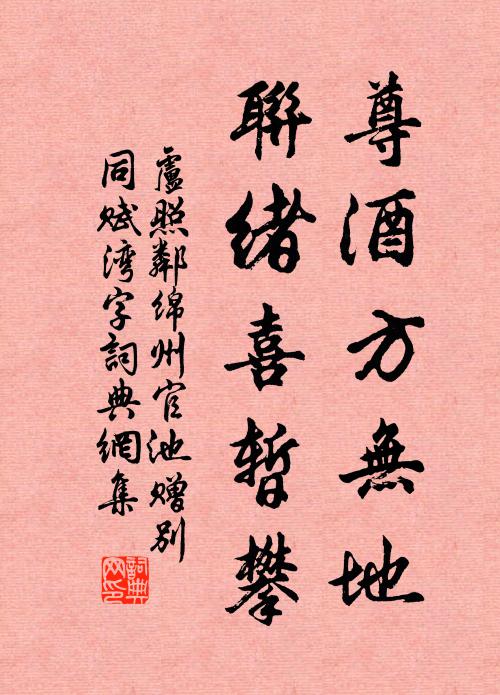 尊酒方無地
聯緒喜暫攀
盧照鄰绵州官池赠别
同赋湾字詞典網集
詞典网印